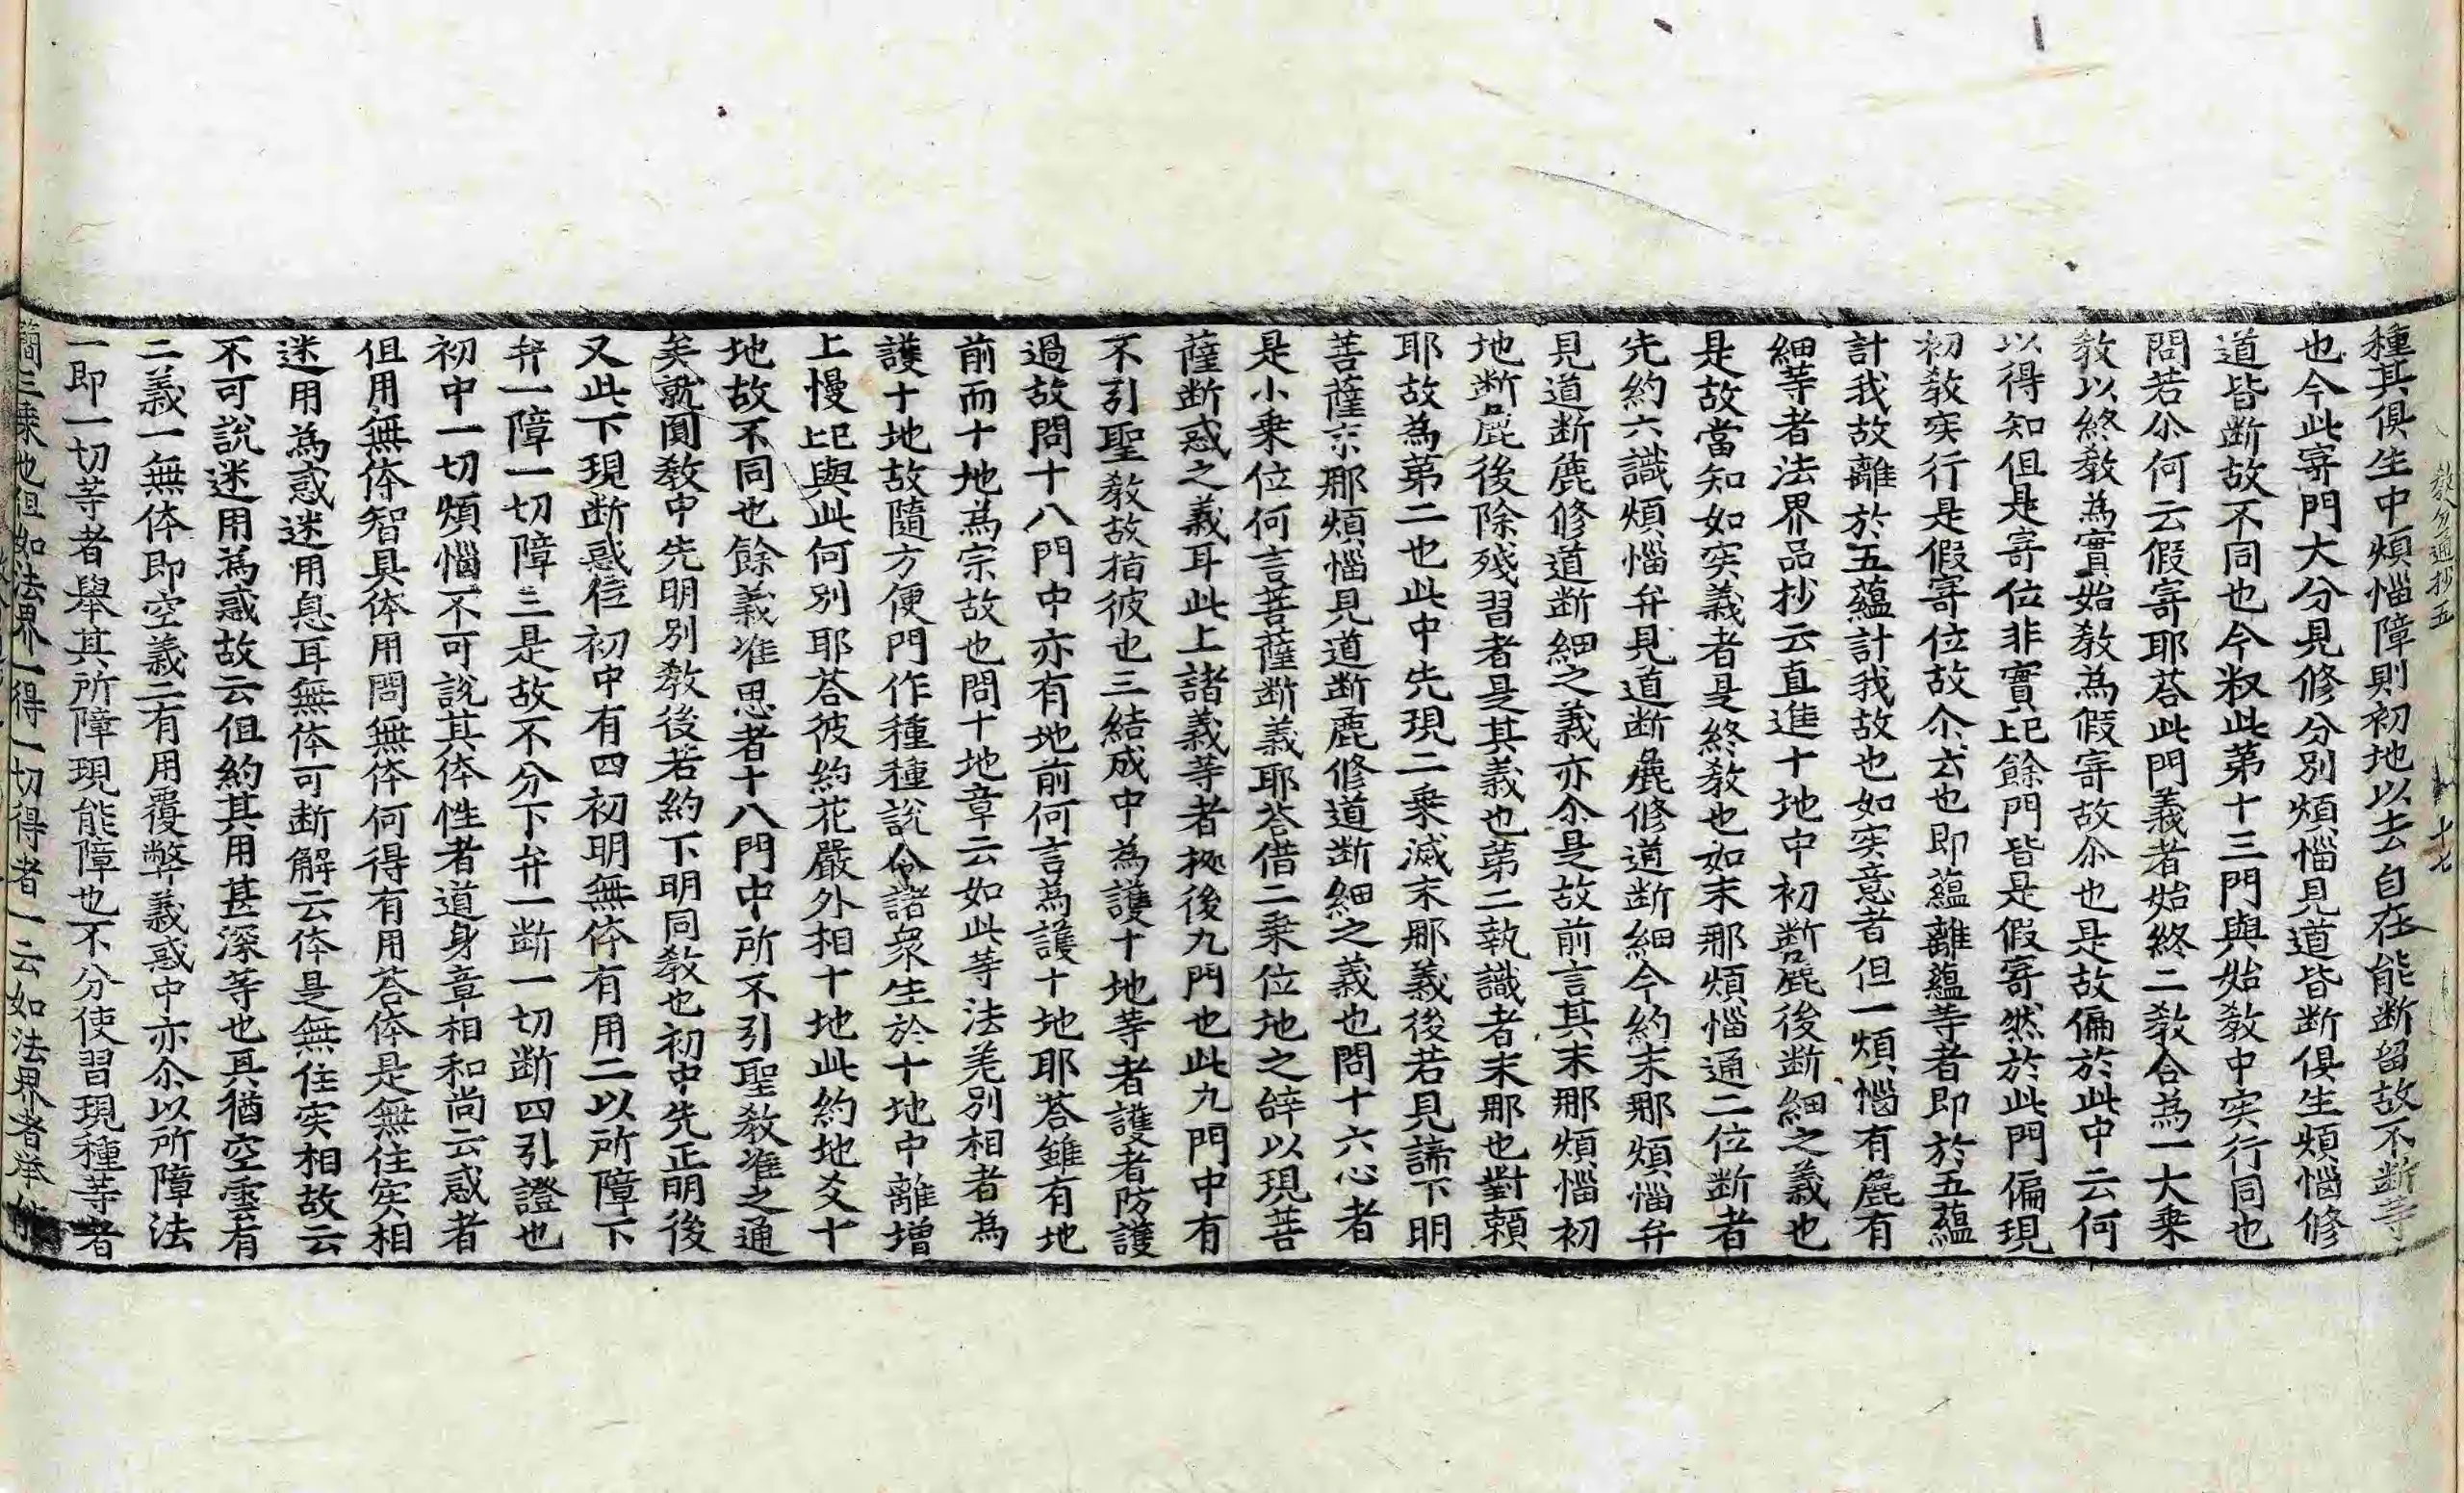 教分通抄五 十七
種其俱生中煩惱障則初地以去自在能断留故不断等
也今此寄門大分見修分別煩惱見道皆断俱生煩惱修
道皆断故不同也今叙此第十三門與始教中实行同也
問若尒何云假寄耶荅此門義者始終二教合為一大乘
教以終教為實始教為假寄故尒也是故偏於此中云何
以得知但是寄位非實比餘門皆是假寄然於此門偏現
初教实行是假寄位故尒云也即蘊離蘊等者即於五蘊
計我故離於五蘊計我故也如实意者但一煩惱有麁有
細等者法界品抄云直進十地中初断麁後断細之義也
是故當知如实義者是終教也如末那煩惱通二位断者
先約六識煩惱弁見道断麁修道断細今約末那煩惱弁
見道断麁修道断細之義亦尒是故前言其末那煩惱初
地断麁後除殘習者是其義也第二執識者末那也對頼
耶故為第二也此中先現二乘滅末那義後若見諦下明
菩薩末那煩惱見道断麁修道断細之義也問十六心者
是小乗位何言菩薩断義耶荅借二乗位地之辞以現菩
薩断惑之義耳此上諸義等者拠後九門也此九門中有
不引聖教故指彼也三結成中為護十地等者護者防護
過故問十八門中亦有地前何言為護十地耶荅雖有地
前而十地為宗故也問十地章云如此等法差別相者為
護十地故隨方便門作種種說令諸衆生於十地中離增
上慢比與此何別耶荅彼約花嚴外相十地此約地爻十
地故不同也餘義准思者十八門中所不引聖教准之通
矣就圓教中先明別教後若約下明同教也初中先正明後
又此下現断惑位初中有四初明無体有用二以所障下
弁一障一切障三是故不分下弁一断一切断四引證也
初中一切煩惱不可說其体性者道身章相和尚云惑者
但用無体智具体用問無体何得有用荅体是無住实相
迷用為惑迷用息耳無体可断解云体是無住实相故云
不可說迷用為惑故云但約其用甚深等也其猶空雲有
二義一無体即空義二有用覆弊義惑中亦尒以所障法
一即一切等者舉其所障現能障也不分使習現種等者
簡三乘也但如法界一得一切得者一云如法界者举